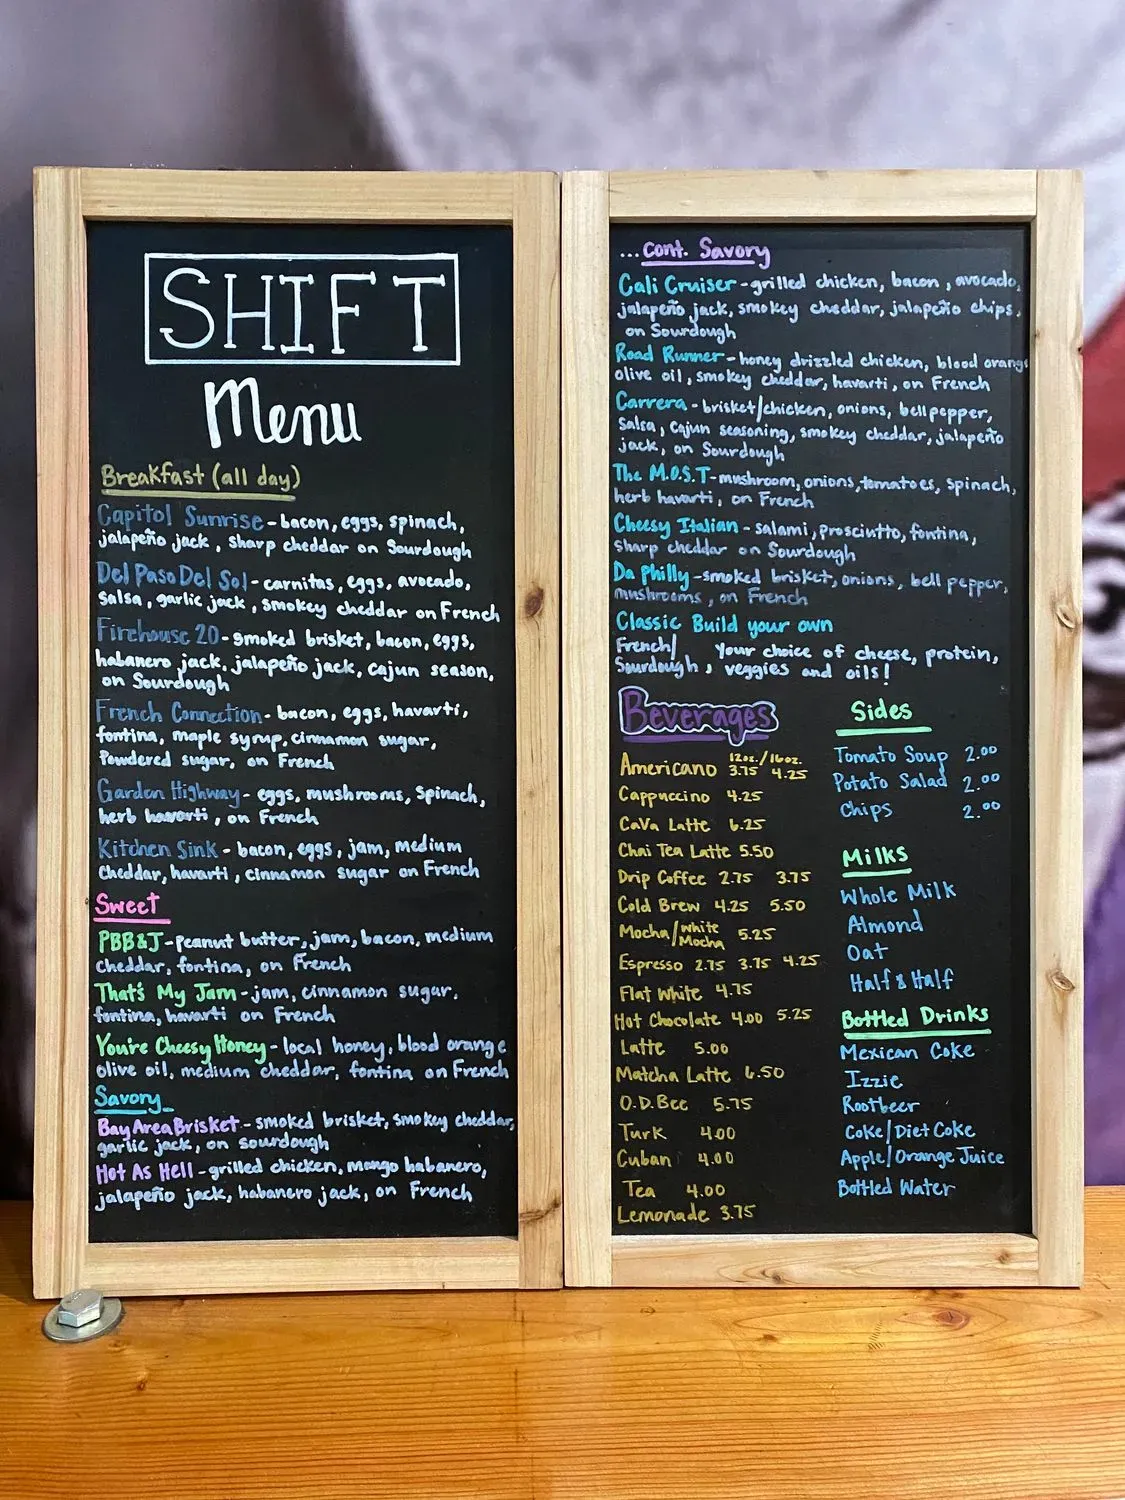 SHIFT
Menu
Breakfast (all day)
Capitol Sunrise - bacon, eggs, spinach,
jalapeño jack, sharp cheddar on Sourdough
Del Paso Del Sol - carnitas, eggs, avocado,
salsa, garlic jack, smokey cheddar on French
Firehouse 20 - smoked brisket, bacon, eggs,
habanero jack, jalapeño jack, cajun season,
on Sourdough
French Connection - bacon, eggs, havarti,
fontina, maple syrup, cinnamon sugar,
Powdered sugar, on French
Garden Highway - eggs, mushrooms, spinach,
herb havarti, on French
Kitchen Sink - bacon, eggs, jam, medium
cheddar, havarti, cinnamon sugar on French
Sweet
PBB&J - peanut butter, jam, bacon, medium
cheddar, fontina, on French
That's My Jam - jam, cinnamon sugar,
fontina, havarti on French
You're Cheesy Honey - local honey, blood orange
olive oil, medium cheddar, fontina on French
Savory
Bay Area Brisket - smoked brisket, smokey cheddar,
garlic jack, on sourdough
Hot As Hell - grilled chicken, mango habanero,
jalapeño jack, habanero jack, on French
...cont. Savory
Cali Cruiser - grilled chicken, bacon, avocado,
jalapeño jack, smokey cheddar, jalapeño chips,
on Sourdough
Road Runner - honey drizzled chicken, blood orange
olive oil, smokey cheddar, havarti, on French
Carrera - brisket/chicken, onions, bell pepper,
salsa, cajun seasoning, smokey cheddar, jalapeño
jack, on Sourdough
The M.O.S.T - mushroom, onions, tomatoes, spinach,
herb havarti, on French
Cheesy Italian - salami, prosciutto, fontina,
sharp cheddar on Sourdough
Da Philly - smoked brisket, onions, bell pepper,
mushrooms, on French
Classic Build your own
French/ Your choice of cheese, protein,
Sourdough, veggies and oils!
Beverages
12oz./16oz.
Americano 3.75 4.25
Cappuccino 4.25
CaVa Latte 6.25
Chai Tea Latte 5.50
Drip Coffee 2.75 3.75
Cold Brew 4.25 5.50
Mocha/White Mocha 5.25
Espresso 2.75 3.75 4.25
Flat White 4.75
Hot Chocolate 4.00 5.25
Latte 5.00
Matcha Latte 6.50
O.D.Bee 5.75
Turk 4.00
Cuban 4.00
Tea 4.00
Lemonade 3.75
Sides
Tomato Soup 2.00
Potato Salad 2.00
Chips 2.00
Milks
Whole Milk
Almond
Oat
Half & Half
Bottled Drinks
Mexican Coke
Izzie
Rootbeer
Coke/Diet Coke
Apple/Orange Juice
Bottled Water